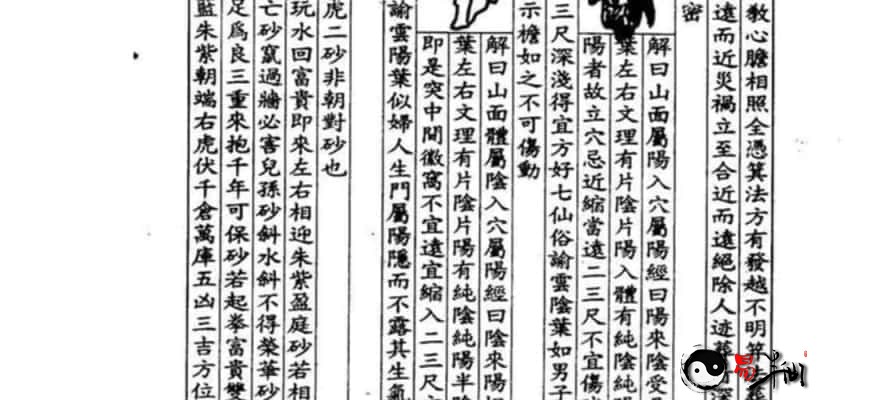 教心膽相照全憑算法方有發越不明算法葬
遠而近災禍立至合近而遠絕除人迹葬深
密
解曰山面屬陽入穴屬陽經曰陽來陰受
葉左右文理有片陰片陽入體有純陰純陽
陽者故立穴忌近縮當遠二三尺不宜傷
三尺深淺得宜方好七仙俗諭雲陰葉如男子
示檐如之不可傷動
解曰山面體屬陰入穴屬陽經曰陰來陽
葉左右文理有片陰片陽有純陰純陽半陰
即是突中間徽窩不宜遠宜縮入二三尺
諭雲陽葉似婦人生門屬陽隱而不露其生氣
虎二砂非朝對砂也
玩水回富貴即來左右相迎朱紫盈庭砂若相
亡砂竄過牆必害兒孫砂斜水斜不得榮華砂
足爲良三重來抱千年可保砂若起拳富貴雙
藍朱紫朝端右虎伏千倉萬庫五凶三吉方位
易半仙